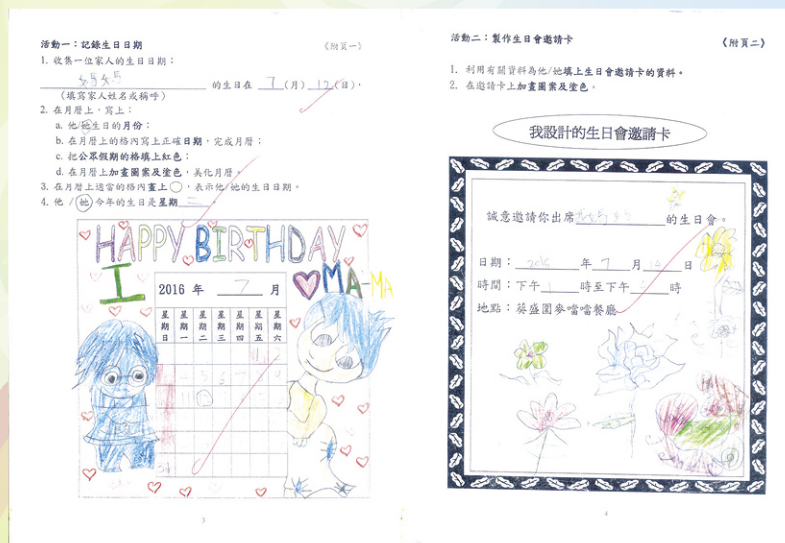 活動一：記錄生日日期
《附頁一》
1. 收集一位家人的生日日期：
媽媽 的生日在 7 (月) 12 (日)，
（填寫家人姓名或稱呼）
2. 在月曆上，寫上：
a. 他/她生日的月份；
b. 在月曆上的格內寫上正確日期，完成月曆；
c. 把公眾假期的格填上紅色；
d. 在月曆上加畫圖案及塗色，美化月曆。
3. 在月曆上適當的格內蓋上○，表示他/她的生日日期。
4. 他 / 她 今年的生日是星期二。
HAPPY BIRTHDAY
I MA-MA
2016 年 7 月
星期日 星期一 星期二 星期三 星期四 星期五 星期六
31
3
活動二：製作生日會邀請卡
《附頁二》
1. 利用有關資料為他/她填上生日會邀請卡的資料。
2. 在邀請卡上加畫圖案及塗色。
我設計的生日會邀請卡
誠意邀請你出席 的生日會。
日期： 2016 年 7 月 日
時間：下午 1 時至下午 時
地點：葵盛圍麥噹噹餐廳
4